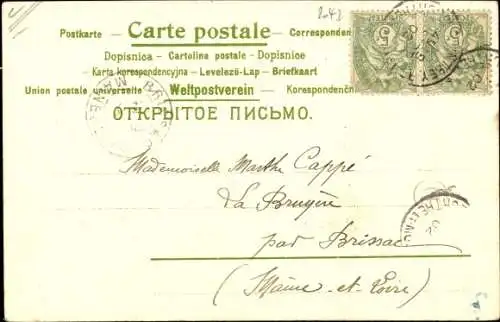 2-42
Postkarte — Carte postale — Corresponden
Dopisnica — Cartolina postale - Dopisnice
Karta korespondencyjna — Levelező-Lap — Briefkaart
Union postale universelle Weltpostverein — Korespondenčn
ОТКРЫТОЕ ПИСЬМО.
5 5
Mademoiselle Marthe Cappé
La Bruyère
par Brissac
(Maine-et-Loire)